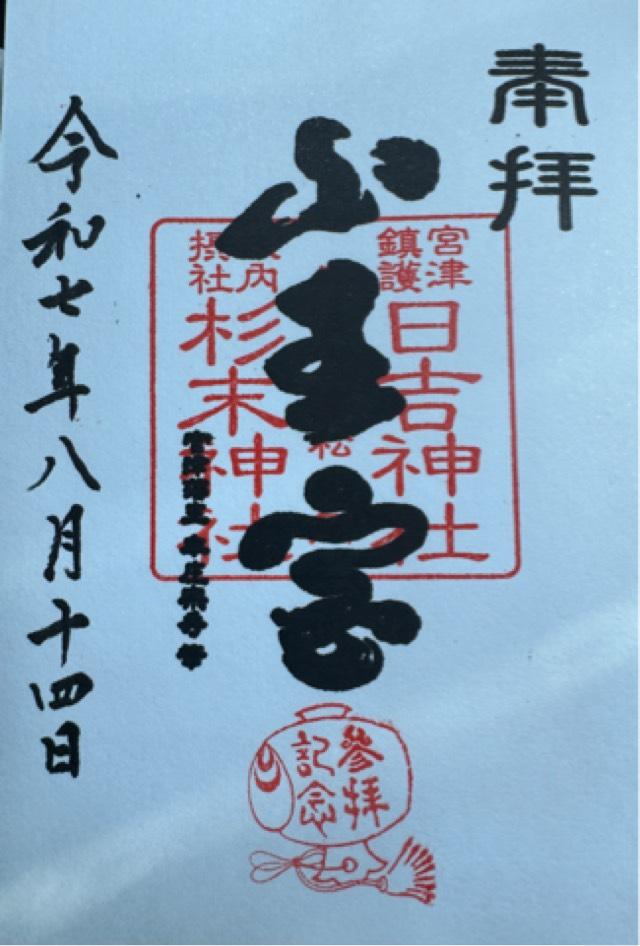 奉拝
山王宮
宮津
鎮護
日吉神社
松
内
摂社
杉末神社
令和七年八月十四日
參拝
記念